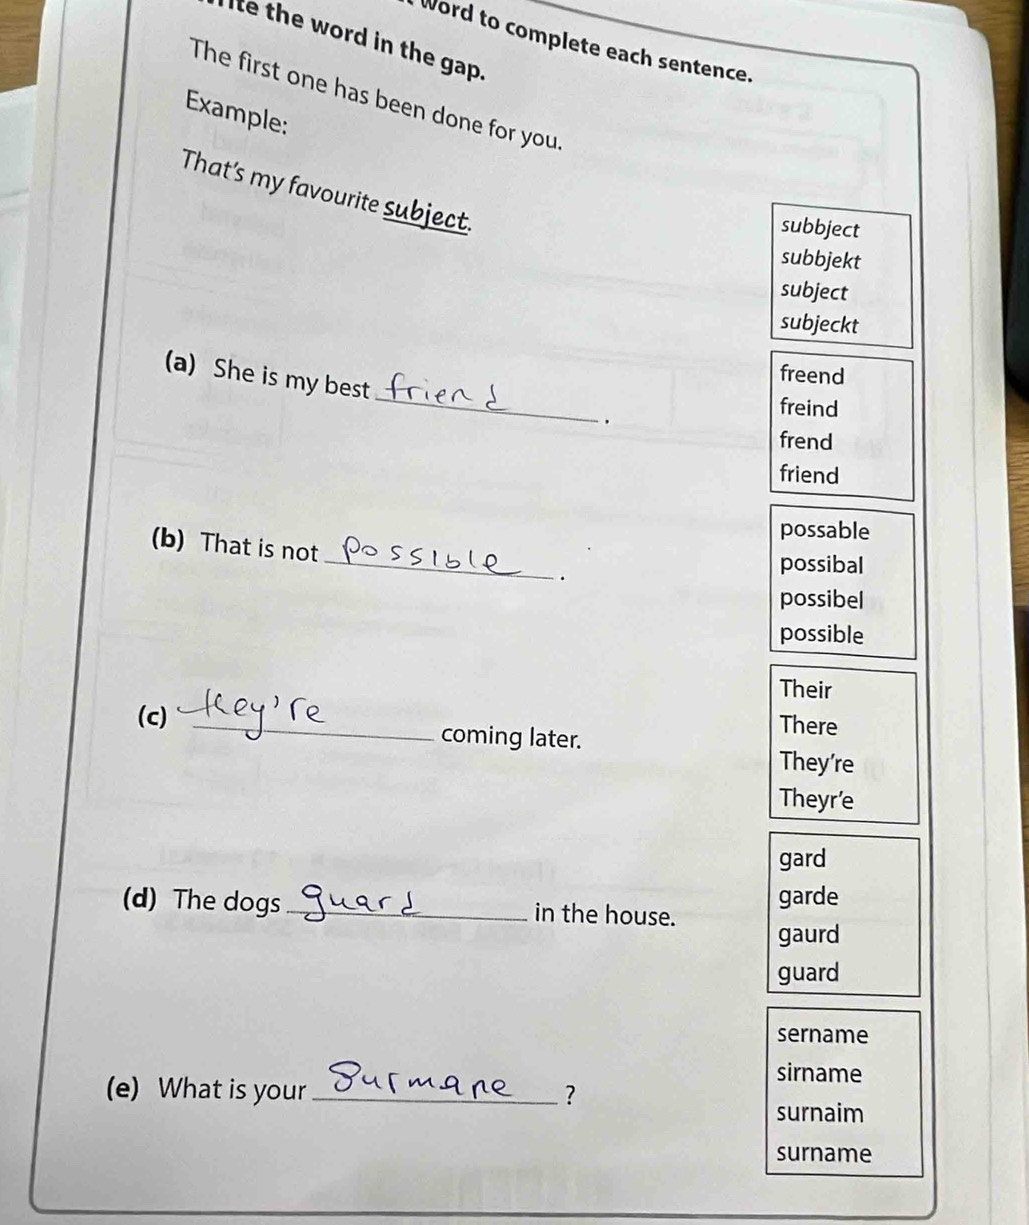 word to complete each sentence.
the word in the gap.
The first one has been done for you.
Example:
That's my favourite subject.
subbject
subbjekt
subject
subjeckt
(a) She is my best friend .
freend
freind
frend
friend
(b) That is not possible .
possable
possibal
possibel
possible
(c) they're coming later.
Their
There
They're
Theyr'e
(d) The dogs guard in the house.
gard
garde
gaurd
guard
(e) What is your Surmane ?
sername
sirname
surnaim
surname